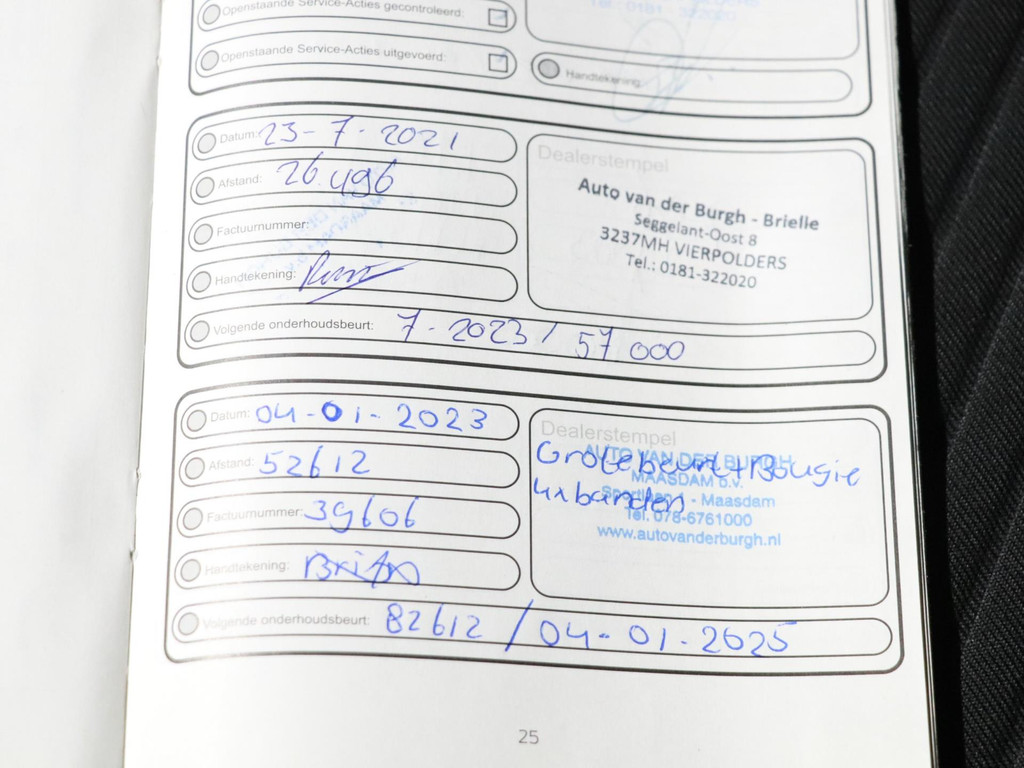 Openstaande Service-Acties gecontroleerd:
Openstaande Service-Acties uitgevoerd:
Tel.: 0181 - 322020
Handtekening:
Datum: 23-7-2021
Afstand: 26.496
Factuurnummer:
Handtekening:
Volgende onderhoudsbeurt: 7-2023 / 57 000
Dealerstempel
Auto van der Burgh - Brielle
Seggelant-Oost 8
3237MH VIERPOLDERS
Tel.: 0181-322020
Datum: 04-01-2023
Afstand: 52612
Factuurnummer: 39606
Handtekening:
Volgende onderhoudsbeurt: 82612 / 04-01-2025
Dealerstempel
Grote beurt + Bougie
4x banden
AUTO VAN DER BURGH
MAASDAM b.v.
- Maasdam
Tel. 078-6761000
www.autovanderburgh.nl
25